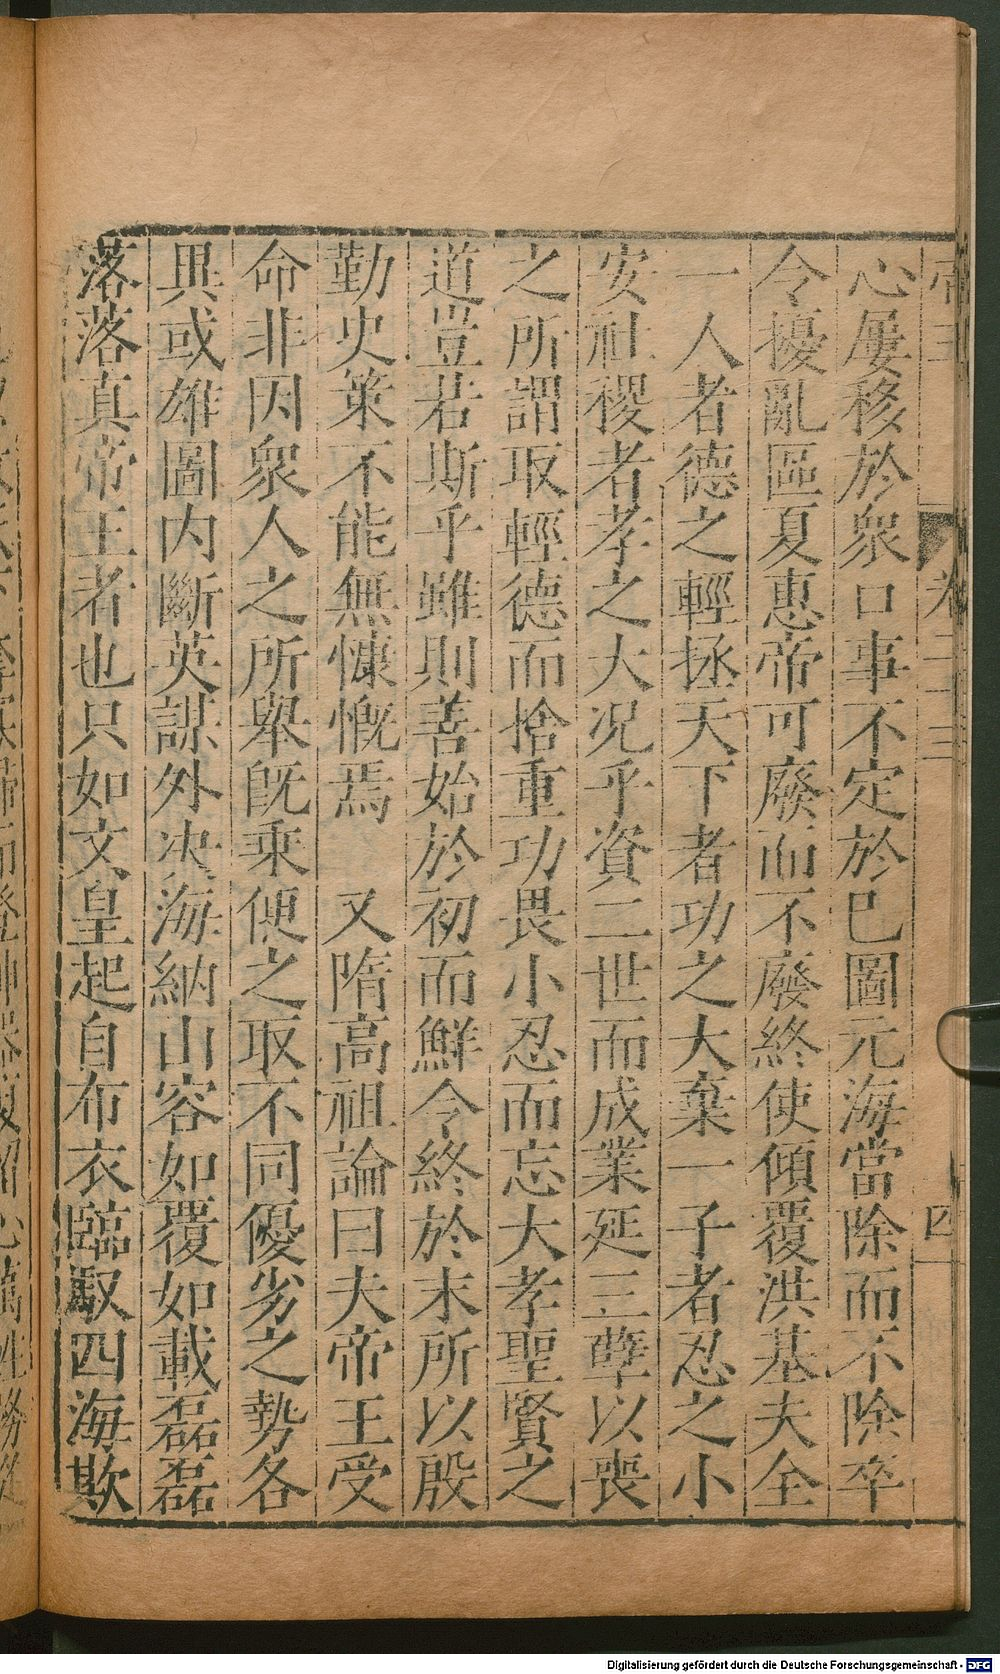 心屢移於衆口事不定於巳圖元海當除而不除卒
令擾亂區夏惠帝可廢而不廢終使傾覆洪基夫全
一人者德之輕拯天下者功之大棄一子者忍之小
安社稷者孝之大况乎資二世而成業延三孽以喪
之所謂取輕德而捨重功畏小忍而忘大孝聖賢之
道豈若斯乎雖則善始於初而鮮令終於末所以殷
勤史策不能無慷慨焉　又隋高祖論曰夫帝王受
命非因衆人之所舉旣乘便之取不同優劣之勢各
異或雄圖内斷英謀外决海納山容如覆如載磊磊
落落真帝王者也只如文皇起自布衣臨馭四海欺
卷二十三
四
Digitalisierung gefördert durch die Deutsche Forschungsgemeinschaft - DFG